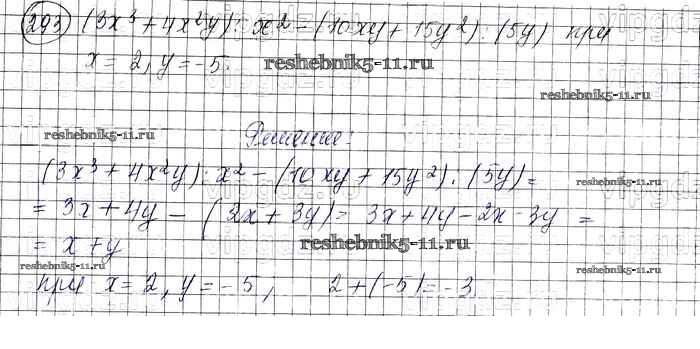 293 (3x³ + 4x²y) : x² − (10xy + 15y²) : (5y) при
x = 2, y = −5.
reshebnik5-11.ru
reshebnik5-11.ru
reshebnik5-11.ru
Решение:
(3x³ + 4x²y) : x² − (10xy + 15y²) : (5y) =
reshebnik5-11.ru
= 3x + 4y − (2x + 3y) = 3x + 4y − 2x − 3y =
= x + y
reshebnik5-11.ru
reshebnik5-11.ru
при x = 2, y = −5, 2 + (−5) = −3
reshebnik5-11.ru